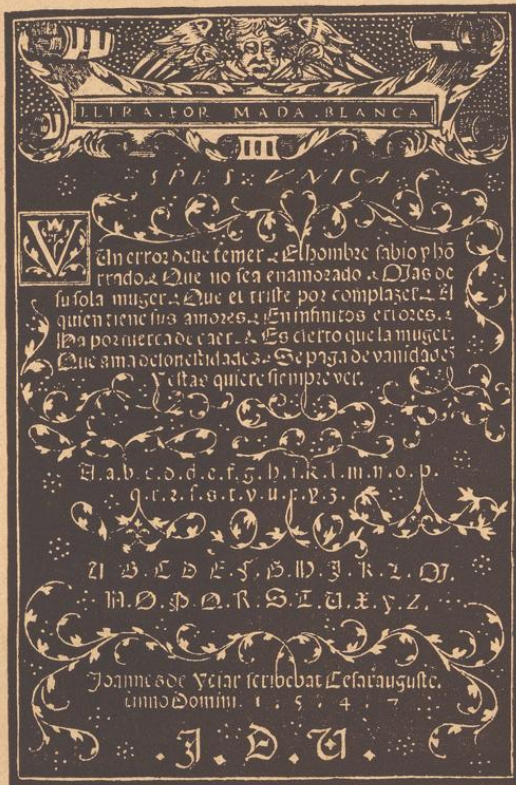 LETRA. FOR MADA BLANCA
SPES VNICA
VUn error deue temer. El hombre sabio y hō
rrado. Que no sea enamorado. Mas de
su sola muger. Que el triste por complazer. El
quien tiene sus amores. En infinitos errores.
Ha por fuerca de caer. Es cierto que la muger.
Que ama desonestidades. Se paga de vanidades
Y estas quiere siempre ver.
A.a.b.c.d.d.e.f.g.h.i.k.l.m.n.o.p.
q.r.z.s.s.t.v.u.x.y.z.
A B.C.D.E.F.G.H.J.K.L.M.
N.O.P.Q.R.S.T.U.X.y.Z.
Joannes de Yciar scribebat Cesarauguste.
anno Domini. 1.5.4.7
.J.D.Y.